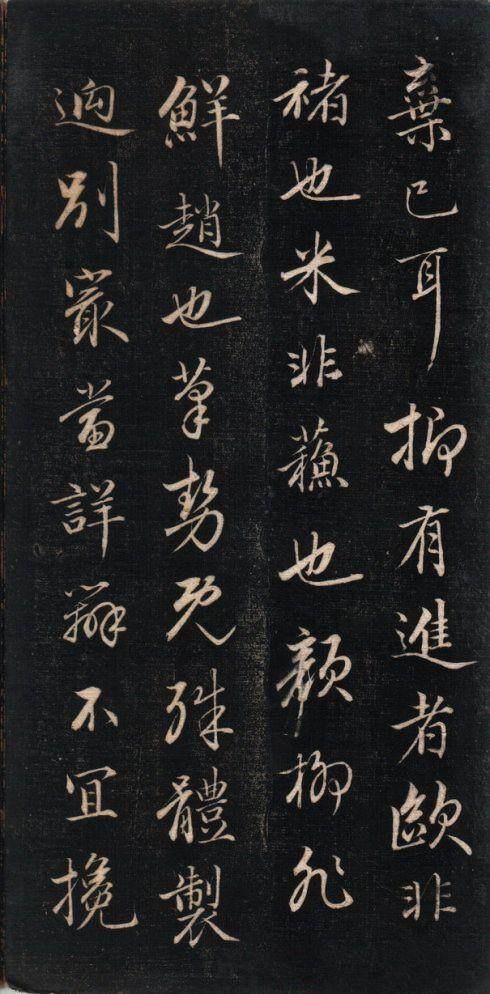 棄已耳抑有進者歐非
褚也米非蘓也顔柳非
鮮趙也筆勢既殊體製
逈別最當詳辨不宜攙